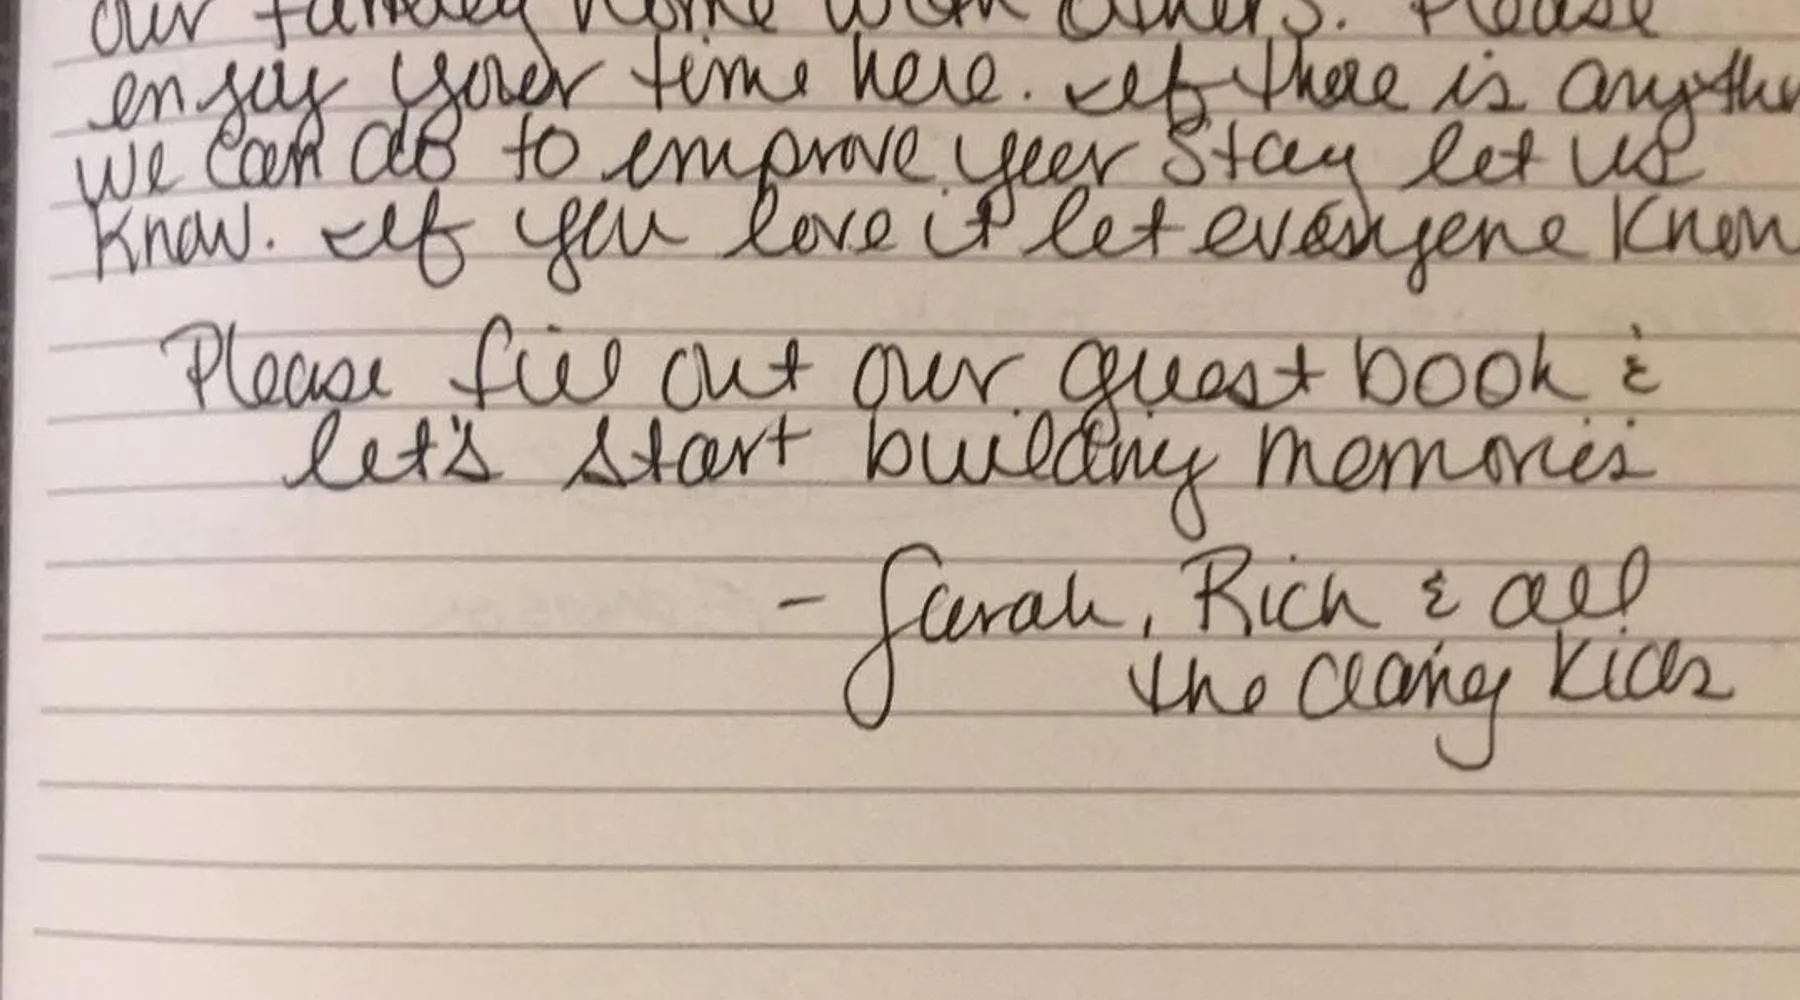 our family home with others. Please
enjoy your time here. If there is anythin
we can do to improve your stay let us
know. If you love it let everyone know
Please fill out our guest book &
let's start building memories
- Sarah, Rich & all
the crazy kids